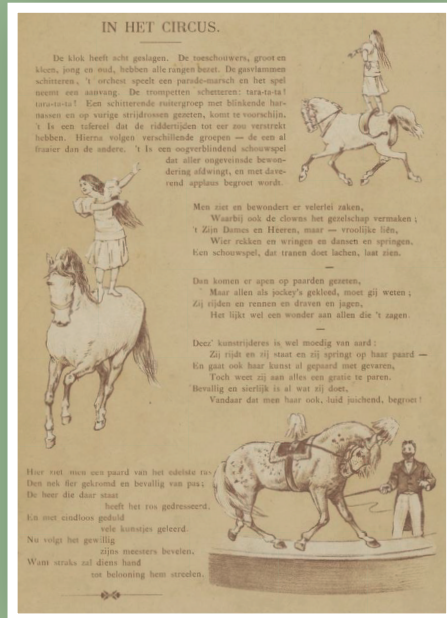 IN HET CIRCUS.
De klok heeft acht geslagen. De toeschouwers, groot en
kleen, jong en oud, hebben alle rangen bezet. De gasvlammen
schitteren, 't orchest speelt een parade-marsch en het spel
neemt een aanvang. De trompetten schetteren: tara-ta-ta!
tara-ta-ta! Een schitterende ruitergroep met blinkende har-
nassen en op vurige strijdrossen gezeten, komt te voorschijn.
't Is een tafereel dat de riddertijden tot eer zou verstrekt
hebben. Hierna volgen verschillende groepen — de een al
fraaier dan de andere. 't Is een oogverblindend schouwspel
dat aller ongeveinsde bewon-
dering afdwingt, en met dave-
rend applaus begroet wordt.
Men ziet en bewondert er velerlei zaken,
Waarbij ook de clowns het gezelschap vermaken;
't Zijn Dames en Heeren, maar — vroolijke liên,
Wier rekken en wringen en dansen en springen,
Een schouwspel, dat tranen doet lachen, laat zien.
—
Dan komen er apen op paarden gezeten,
Maar allen als jockey's gekleed, moet gij weten;
Zij rijden en rennen en draven en jagen,
Het lijkt wel een wonder aan allen die 't zagen.
—
Deez' kunstrijderes is wel moedig van aard:
Zij rijdt en zij staat en zij springt op haar paard —
En gaat ook haar kunst al gepaard met gevaren,
Toch weet zij aan alles een gratie te paren.
Bevallig en sierlijk is al wat zij doet,
Vandaar dat men haar ook, luid juichend, begroet!
Hier ziet men een paard van het edelste ras
Den nek fier gekromd en bevallig van pas;
De heer die daar staat
heeft het ros gedresseerd.
En met eindloos geduld
vele kunstjes geleerd.
Nu volgt het gewillig
zijns meesters bevelen.
Want straks zal diens hand
tot belooning hem streelen.